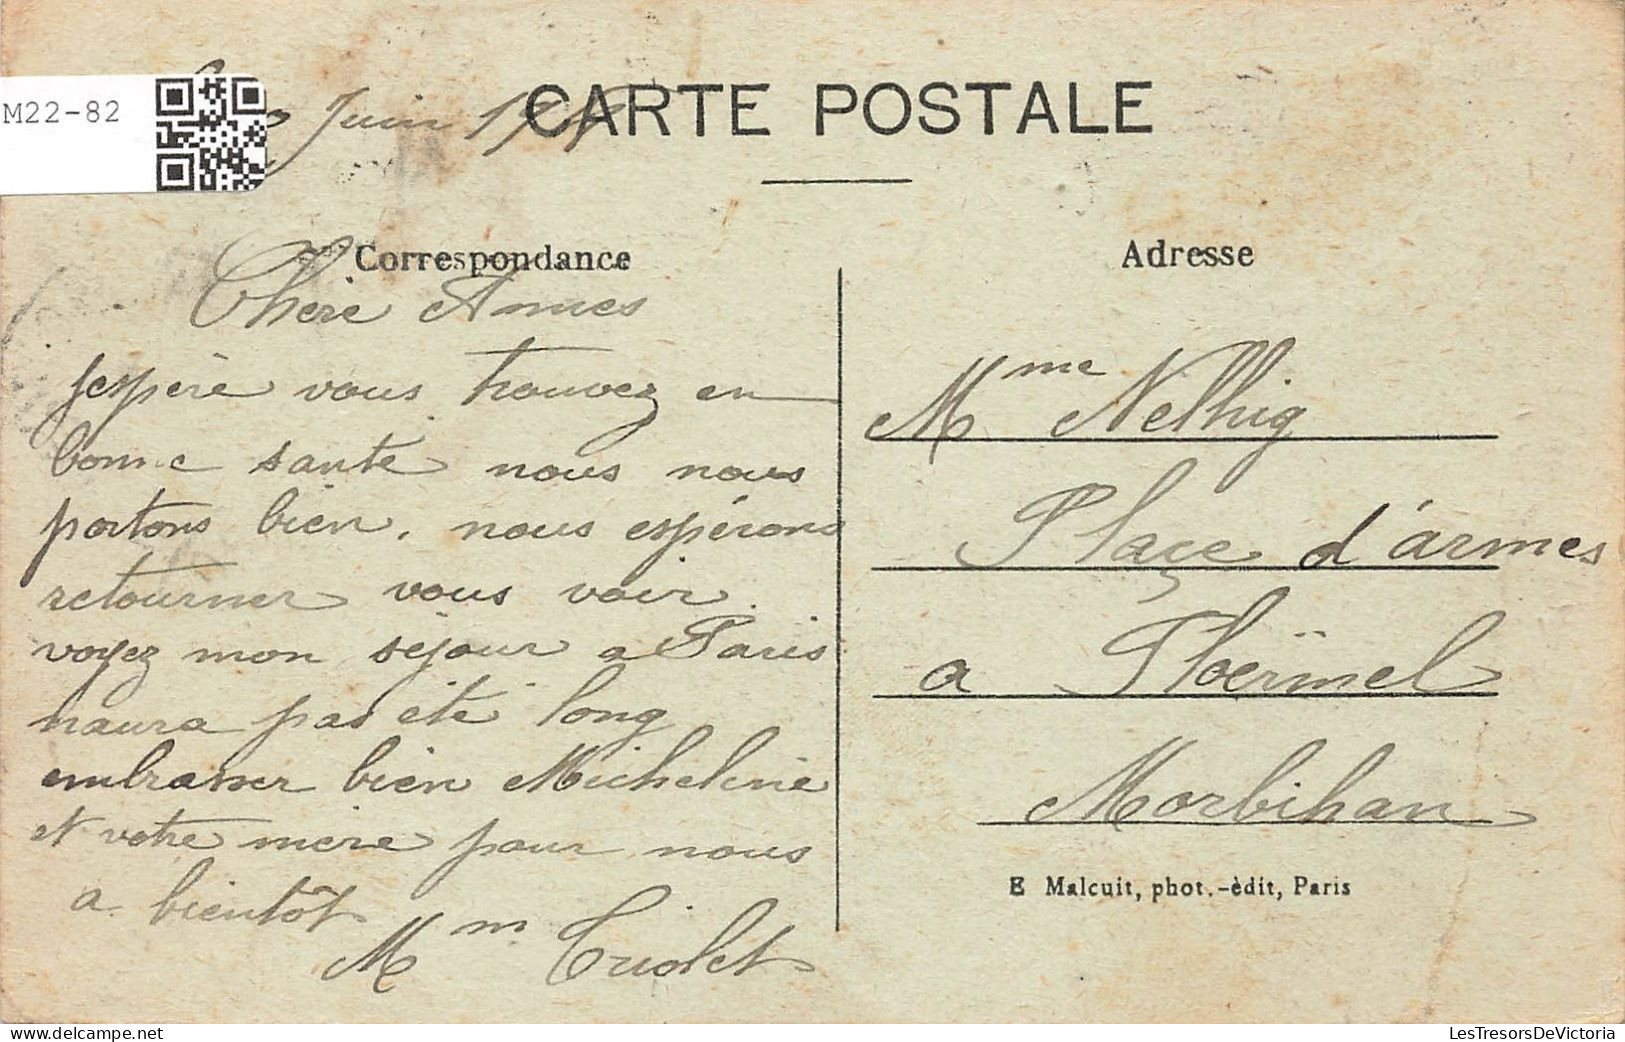 M22-82
Juin
CARTE POSTALE
Correspondance
Chère Amies
Jespère vous trouvez en
bonne santé nous nous
portons bien, nous espérons
retourner vous voir.
voyez mon séjour a Paris
naura pas été long
embrasser bien Micheline
et votre mère pour nous
a bientôt
Mm Triolet
Adresse
Mme Nelhig
Plaçe d'armes
a Ploërmel
Morbihan
E Malcuit, phot.-èdit, Paris
LesTresorsDeVictoria